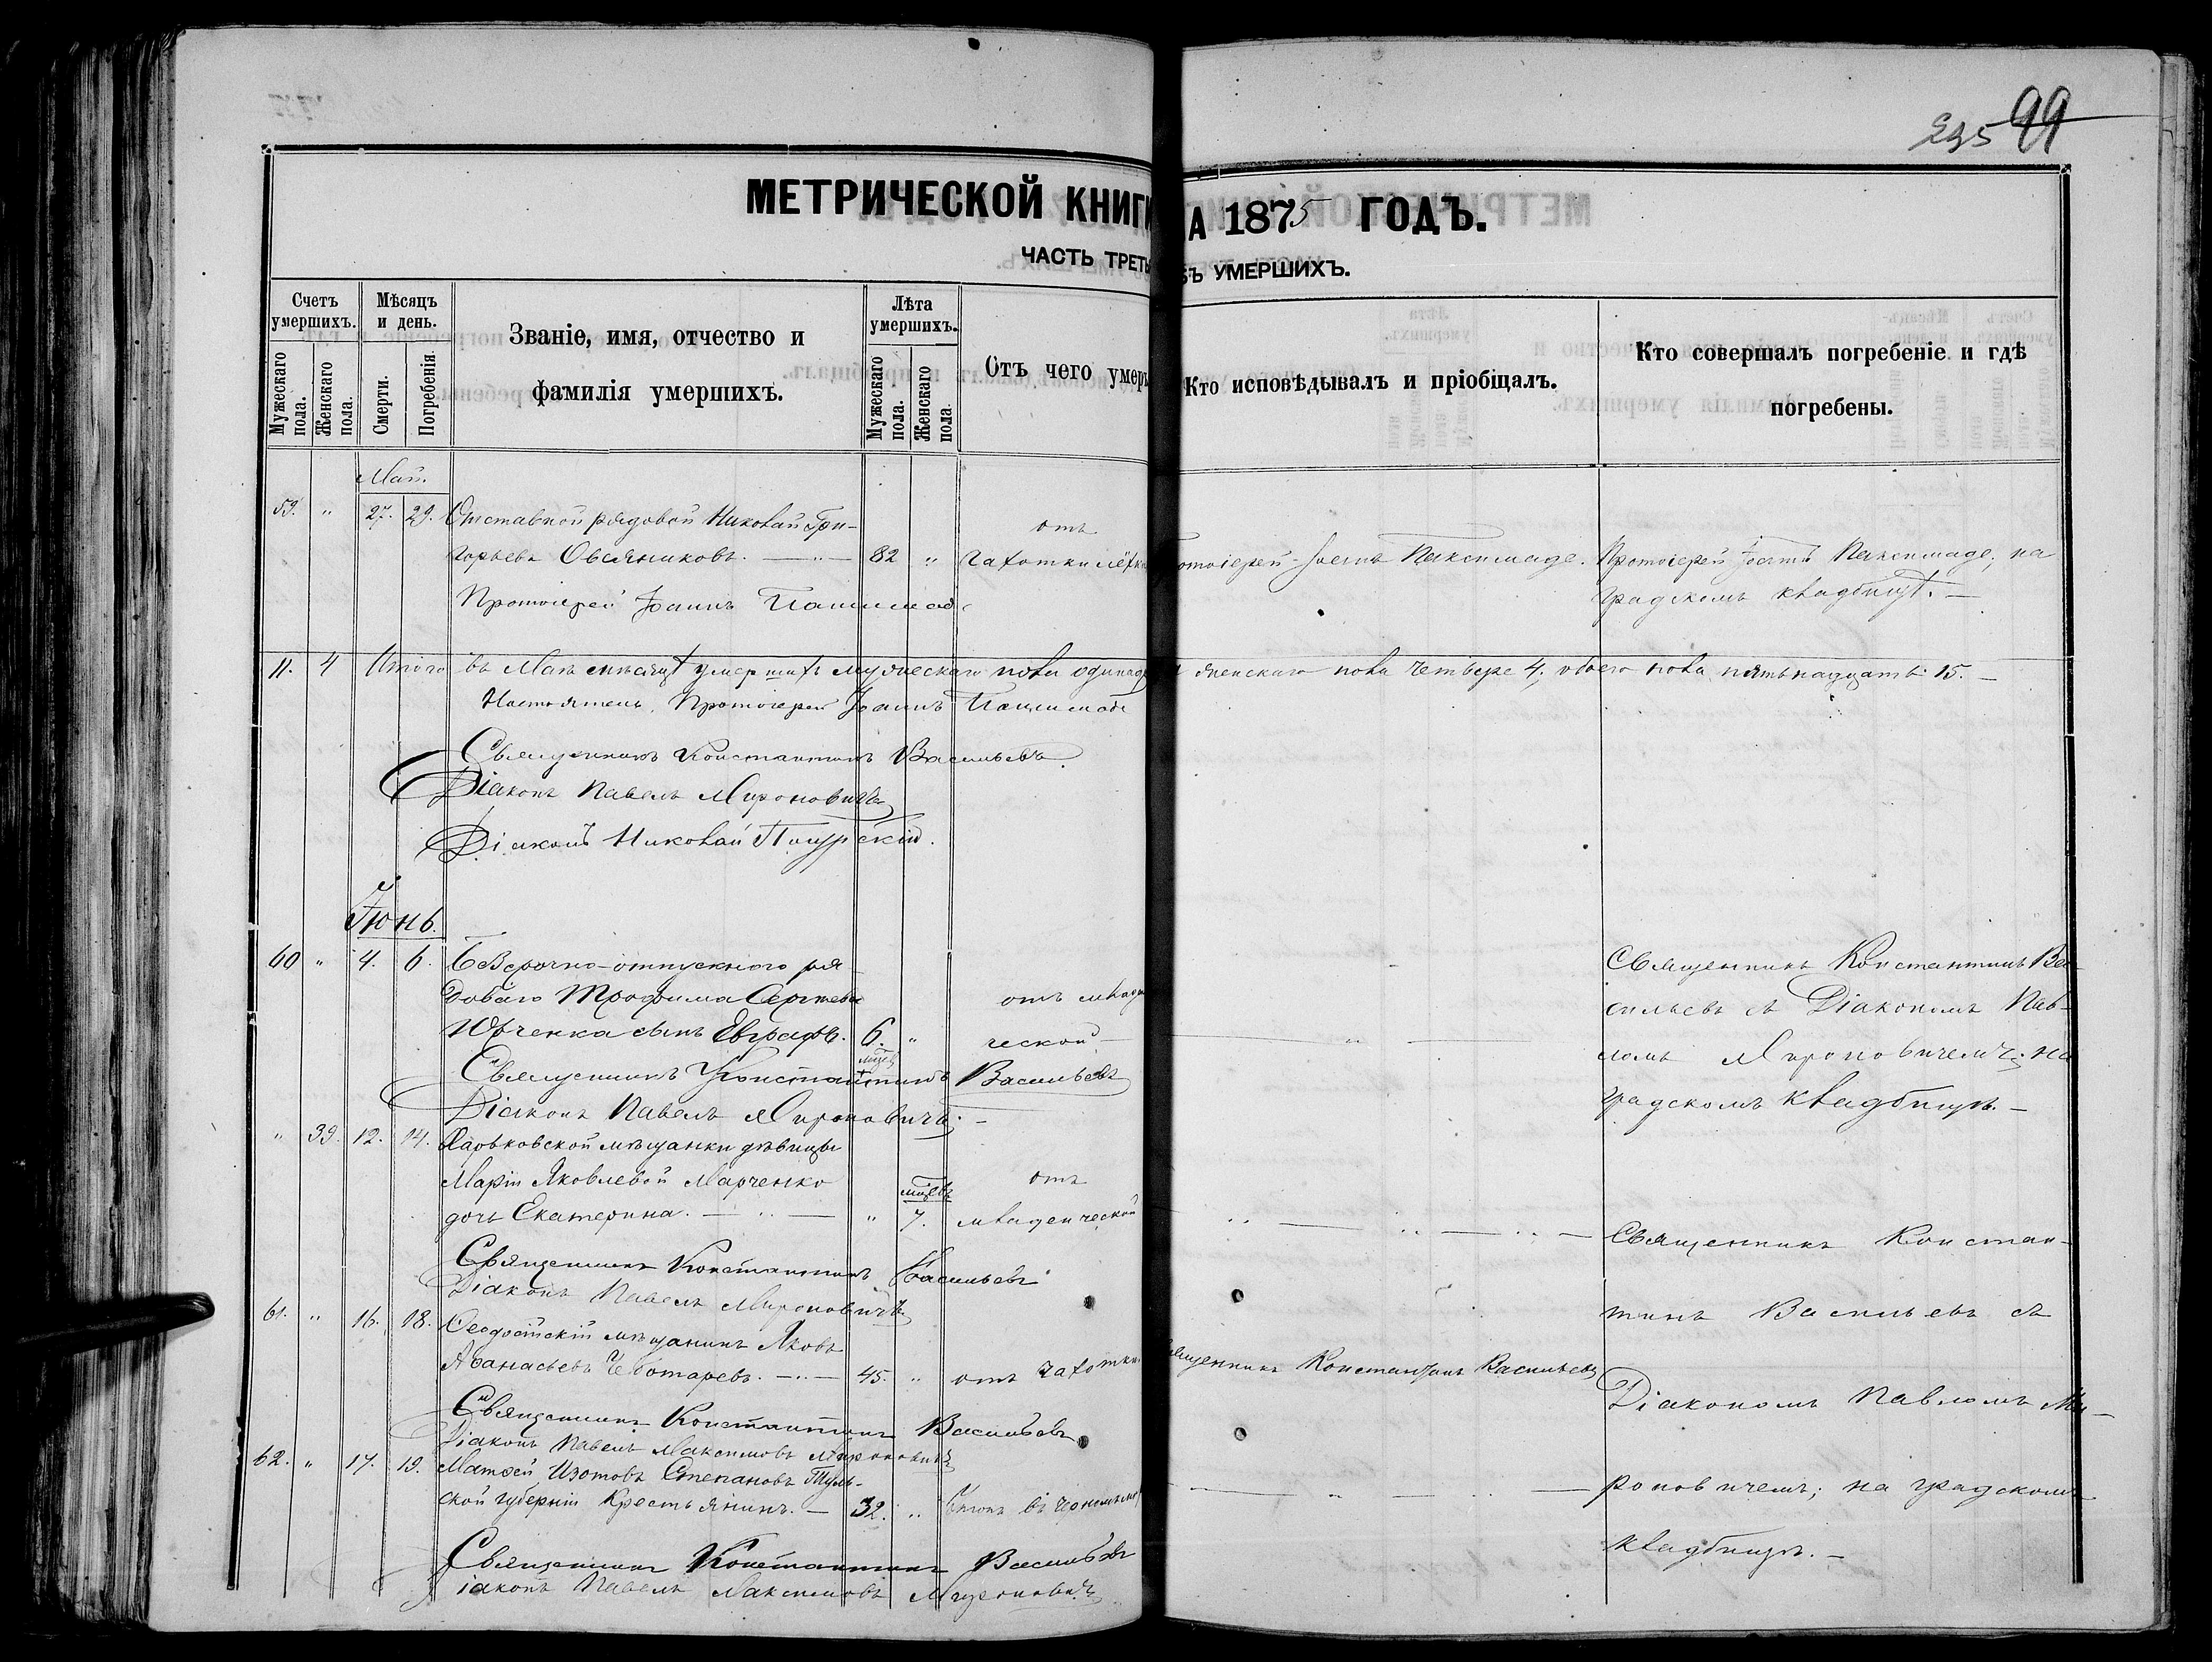 99
МЕТРИЧЕСКОЙ КНИГИ
А 1875 ГОДЪ.
ЧАСТЬ ТРЕТЬ
БЪ УМЕРШИХЪ.
Счетъ умершихъ.
Мужескаго пола.
Женскаго пола.
Мѣсяцъ и день.
Смерти.
Погребенія.
Званіе, имя, отчество и
фамилія умершихъ.
Лѣта умершихъ.
Мужескаго пола.
Женскаго пола.
Отъ чего умер
Кто исповѣдывалъ и пріобщалъ.
Кто совершалъ погребеніе и гдѣ
погребены.
Май.
59. " 27. 29. Отставной рядовой Николай Гри-
горьевъ Овсяниковъ. 82 "
отъ
чахотки лёгк
Протоіерей Іоаннъ
на
градскомъ кладбищѣ.
Протоіерей Іоаннъ
11. 4 Итого въ Маѣ мѣсяцѣ умершихъ мужескаго пола одинад
женскаго пола четверо 4, обоего пола пятьнадцать 15.
Настоятель, Протоіерей Іоаннъ
Священникъ Константинъ Васильевъ
Діаконъ Павелъ Мироновичъ
Діаконъ Николай
Іюнь.
60 " 4. 6. Безсрочно-отпускного ря-
доваго Трофима Сергѣева
Юрченка сынъ Евграфъ. 6. "
мцевъ
отъ млад
ческой
Священникъ Константинъ Ва-
сильевъ съ Діакономъ Пав-
ломъ Мироновичемъ; на
градскомъ кладбищѣ.
Священникъ Константинъ Васильевъ
Діаконъ Павелъ Мироновичъ.
" 39. 12. 14. Харьковской мѣщанки дѣвицы
Маріи Яковлевой Марченко
дочь Екатерина. " 7.
мцевъ
отъ
младенческой
Священникъ Констан-
Священникъ Константинъ Васильевъ
Діаконъ Павелъ Мироновичъ
61. " 16. 18. Ѳеодосійскій мѣщанинъ Яковъ
Аѳанасьевъ Чеботаревъ. 45. " отъ чахотки
щенникъ Константинъ Васильевъ
тинъ Васильевъ съ
Діакономъ Павломъ Ми-
Священникъ Константинъ Васильевъ
Діаконъ Павелъ Максимовъ Мироновичъ
62. " 17. 19. Матѳей Изотовъ Степановъ Туль-
ской губерніи Крестьянинъ. 32. "
роновичемъ; на градскомъ
кладбищѣ.
Священникъ Константинъ Васильевъ
Діаконъ Павелъ Максимовъ Мироновичъ